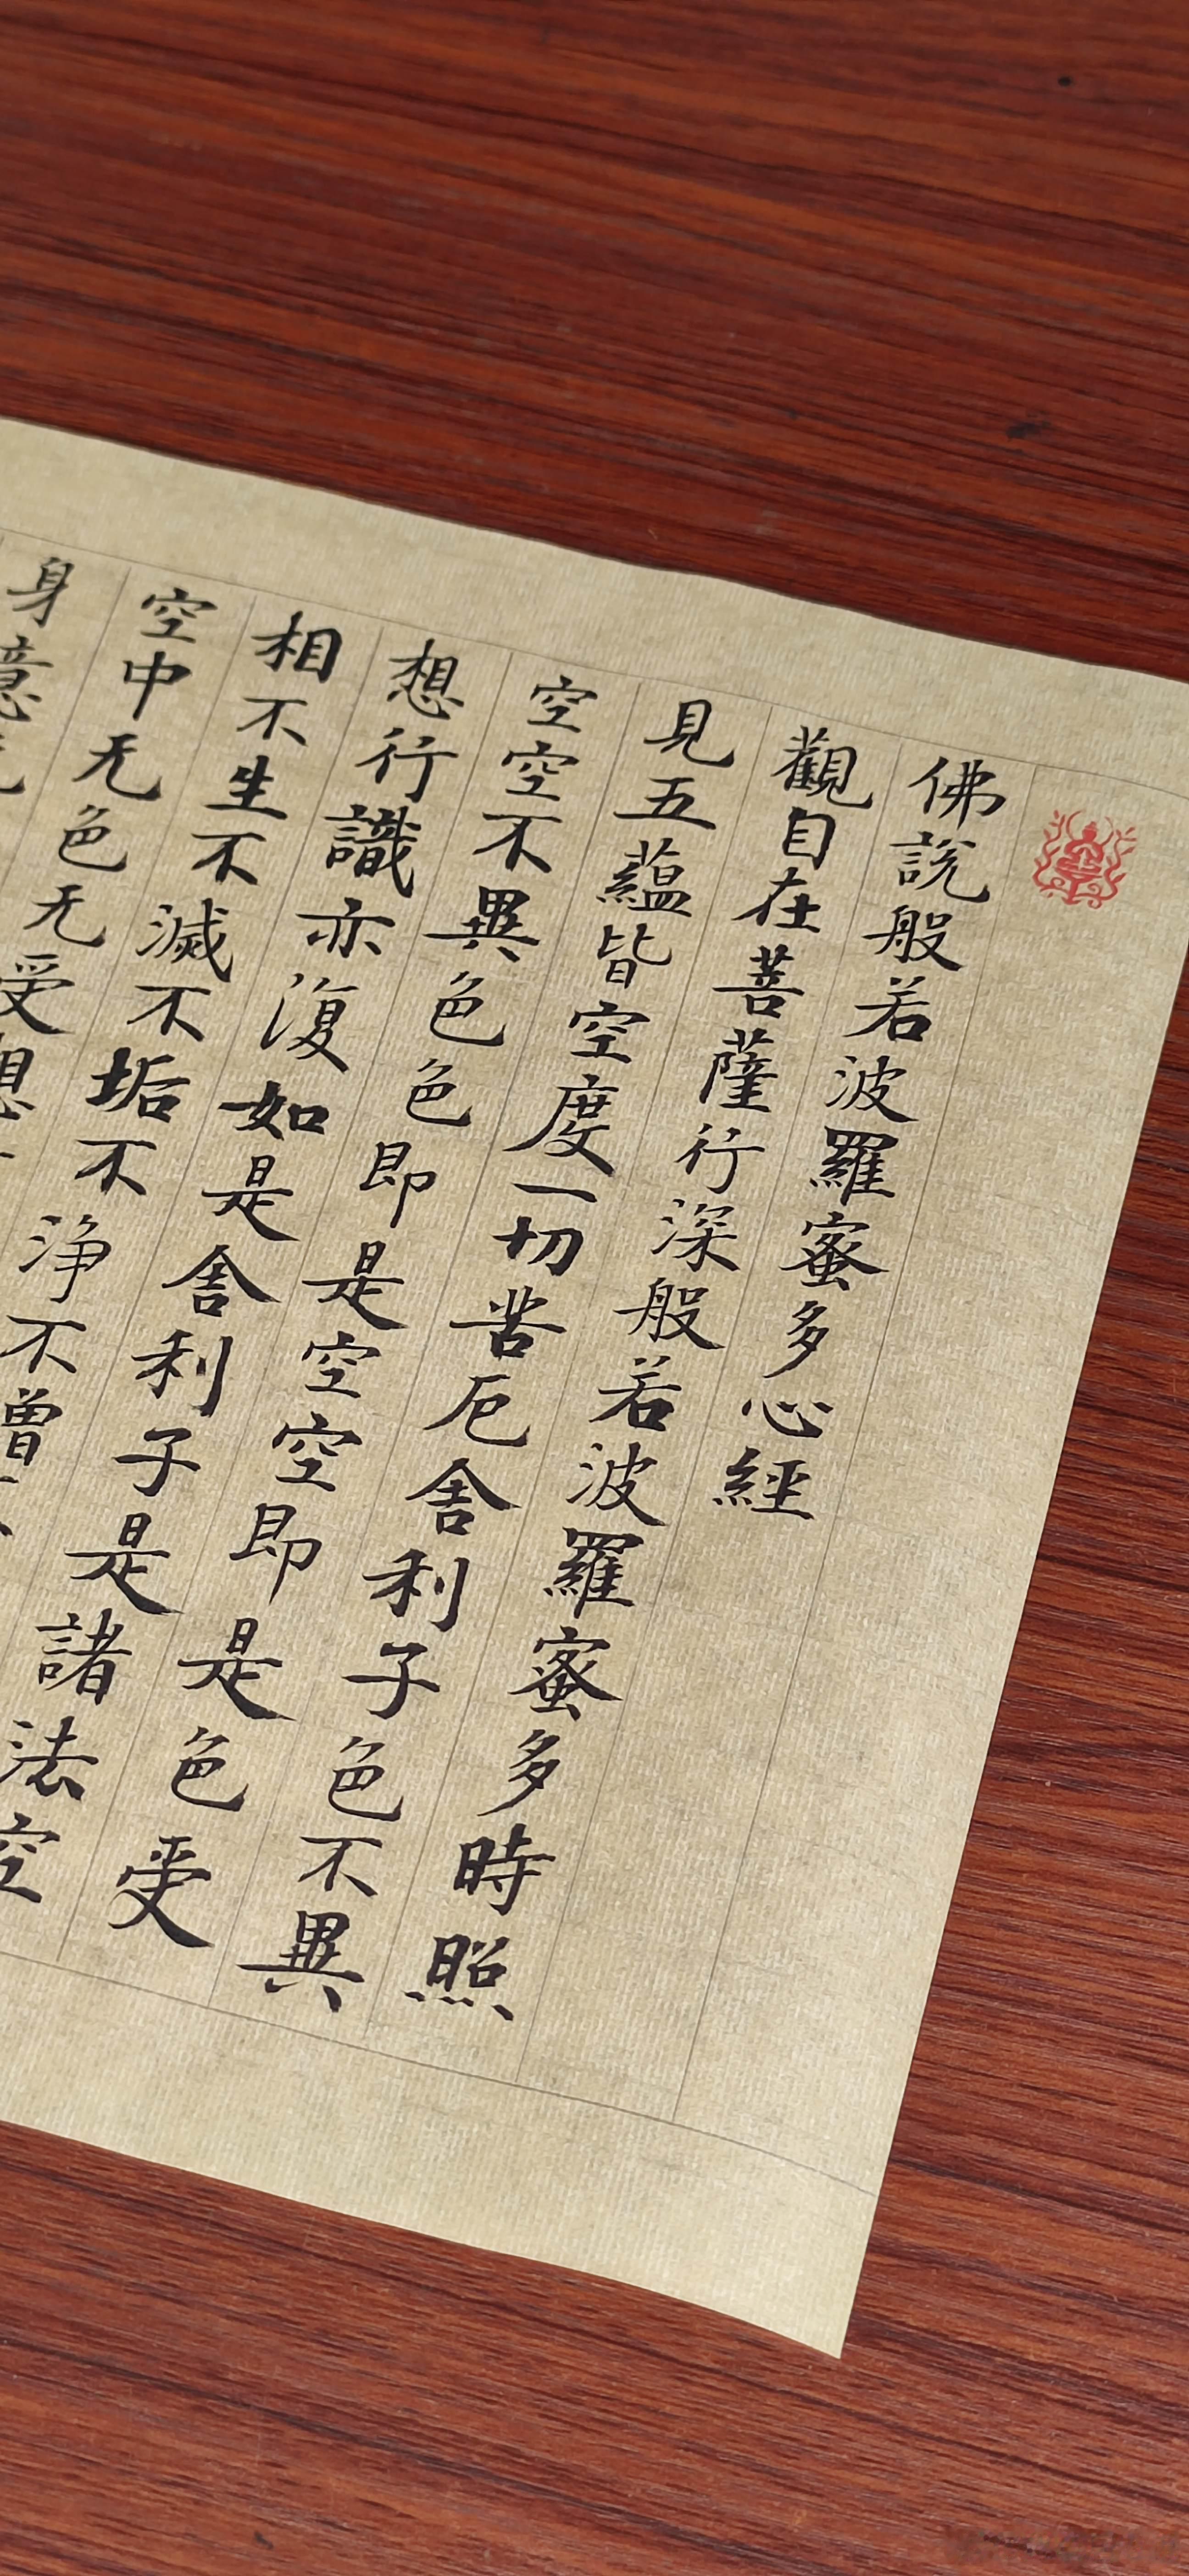 佛說般若波羅蜜多心經
觀自在菩薩行深般若波羅蜜多時照
見五蘊皆空度一切苦厄舍利子色不異
空空不異色色即是空空即是色受
想行識亦復如是舍利子是諸法空
相不生不滅不垢不淨不增
空中无色无受想
身意